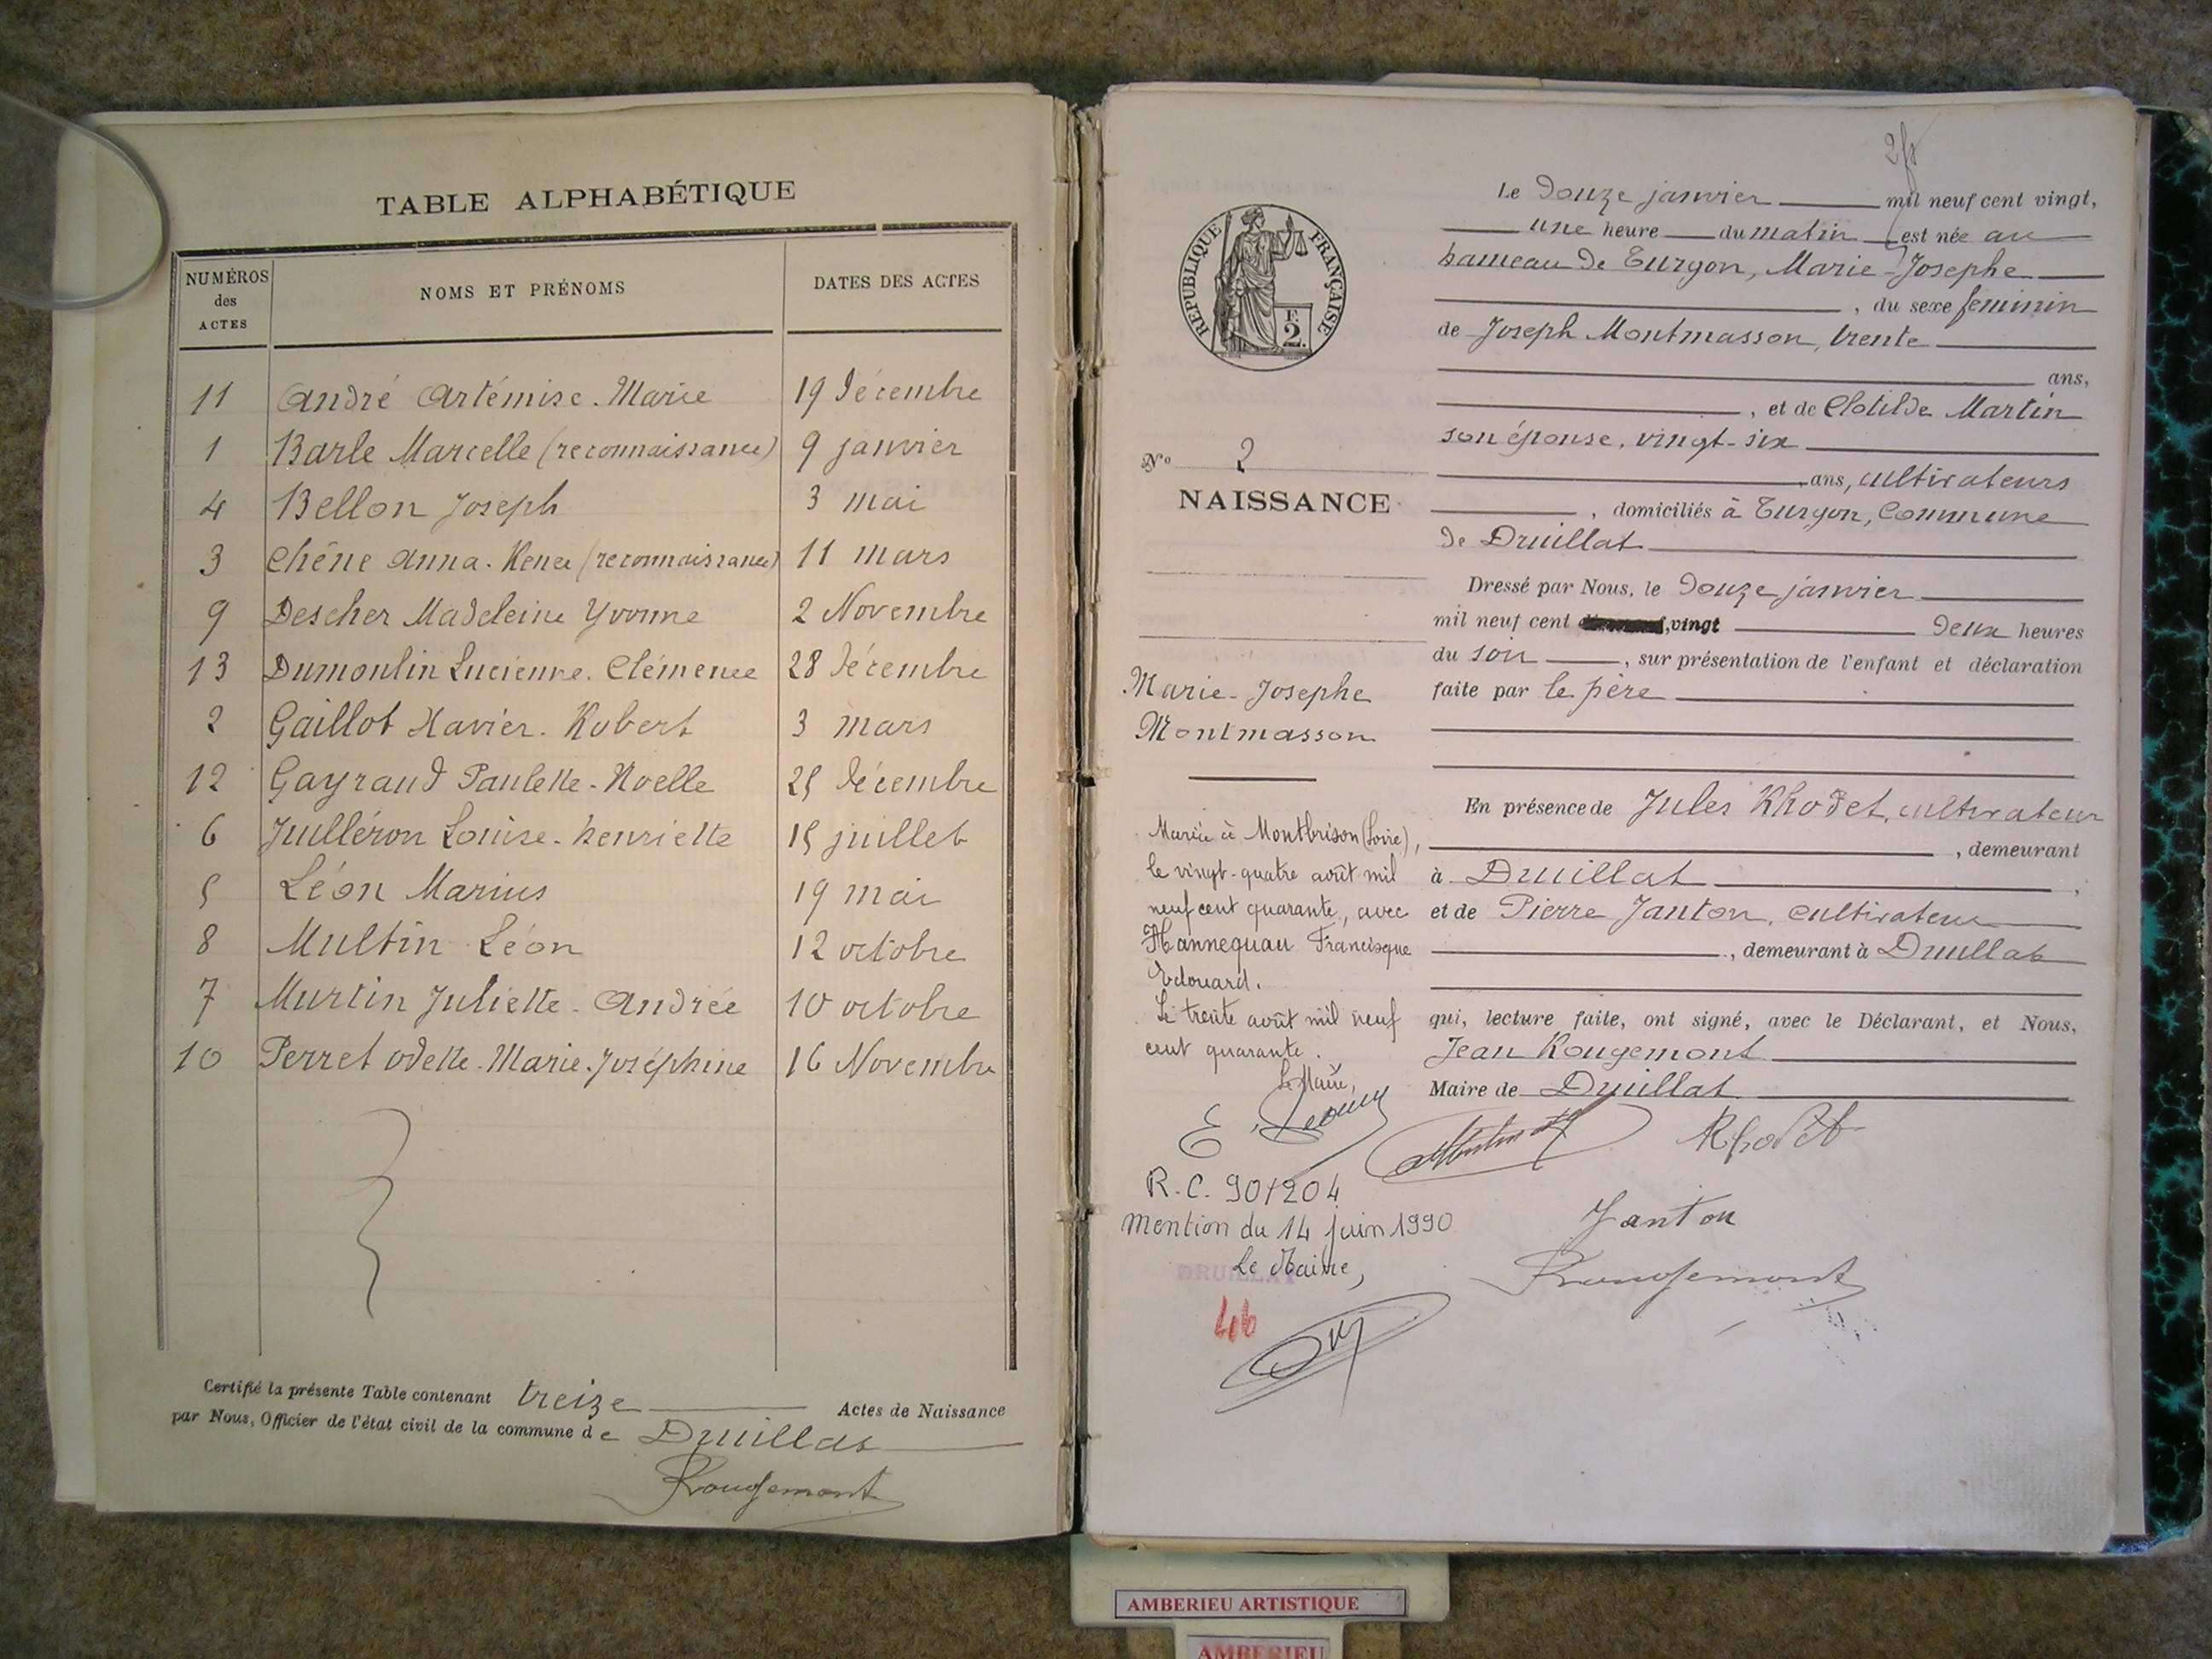 TABLE ALPHABÉTIQUE
NUMÉROS des ACTES
NOMS ET PRÉNOMS
DATES DES ACTES
11 André Artémise-Marie 19 Décembre
1 Barle Marcelle (reconnaissance) 9 janvier
4 Bellon Joseph 3 mai
3 Chêne Anna-Renée (reconnaissance) 11 mars
9 Descher Madeleine Yvonne 2 Novembre
13 Dumoulin Lucienne-Clémence 28 Décembre
2 Gaillot Xavier-Robert 3 mars
12 Gayraud Paulette-Noelle 25 Décembre
6 Juilléron Louise-henriette 15 juillet
5 Léon Marius 19 mai
8 Multin Léon 12 octobre
7 Murtin Juliette-Andrée 10 octobre
10 Perret odette-Marie-Joséphine 16 Novembre
Certifié la présente Table contenant treize Actes de Naissance
par Nous, Officier de l'état civil de la commune de Druillat
Rougemont
REPUBLIQUE FRANÇAISE
F. 2.
Nº 2
NAISSANCE
Marie-Josephe
Montmasson
Mariée à Montbrison (Loire),
le vingt-quatre août mil
neuf cent quarante, avec
Hannequau Francisque
Edouard.
Le trente août mil neuf
cent quarante.
Le Maire,
R.C. 90/204
Mention du 14 juin 1990
Le Maire,
DRUILLAT
46
Le Douze janvier mil neuf cent vingt,
une heure du matin est née au
hameau de Turgon, Marie-Josephe
, du sexe féminin
de Joseph Montmasson, trente
ans,
, et de Clotilde Martin
son épouse, vingt-six
ans, cultivateurs
, domiciliés à Turgon, Commune
de Druillat
Dressé par Nous, le Douze janvier
mil neuf cent vingt Deux heures
du soir, sur présentation de l'enfant et déclaration
faite par le père
En présence de Jules Rhodet, cultivateur
, demeurant
à Druillat,
et de Pierre Janton, cultivateur
, demeurant à Druillat
qui, lecture faite, ont signé, avec le Déclarant, et Nous,
Jean Rougemont
Maire de Druillat
Rhodet
Janton
Rougemont
AMBERIEU ARTISTIQUE
AMBERIEU